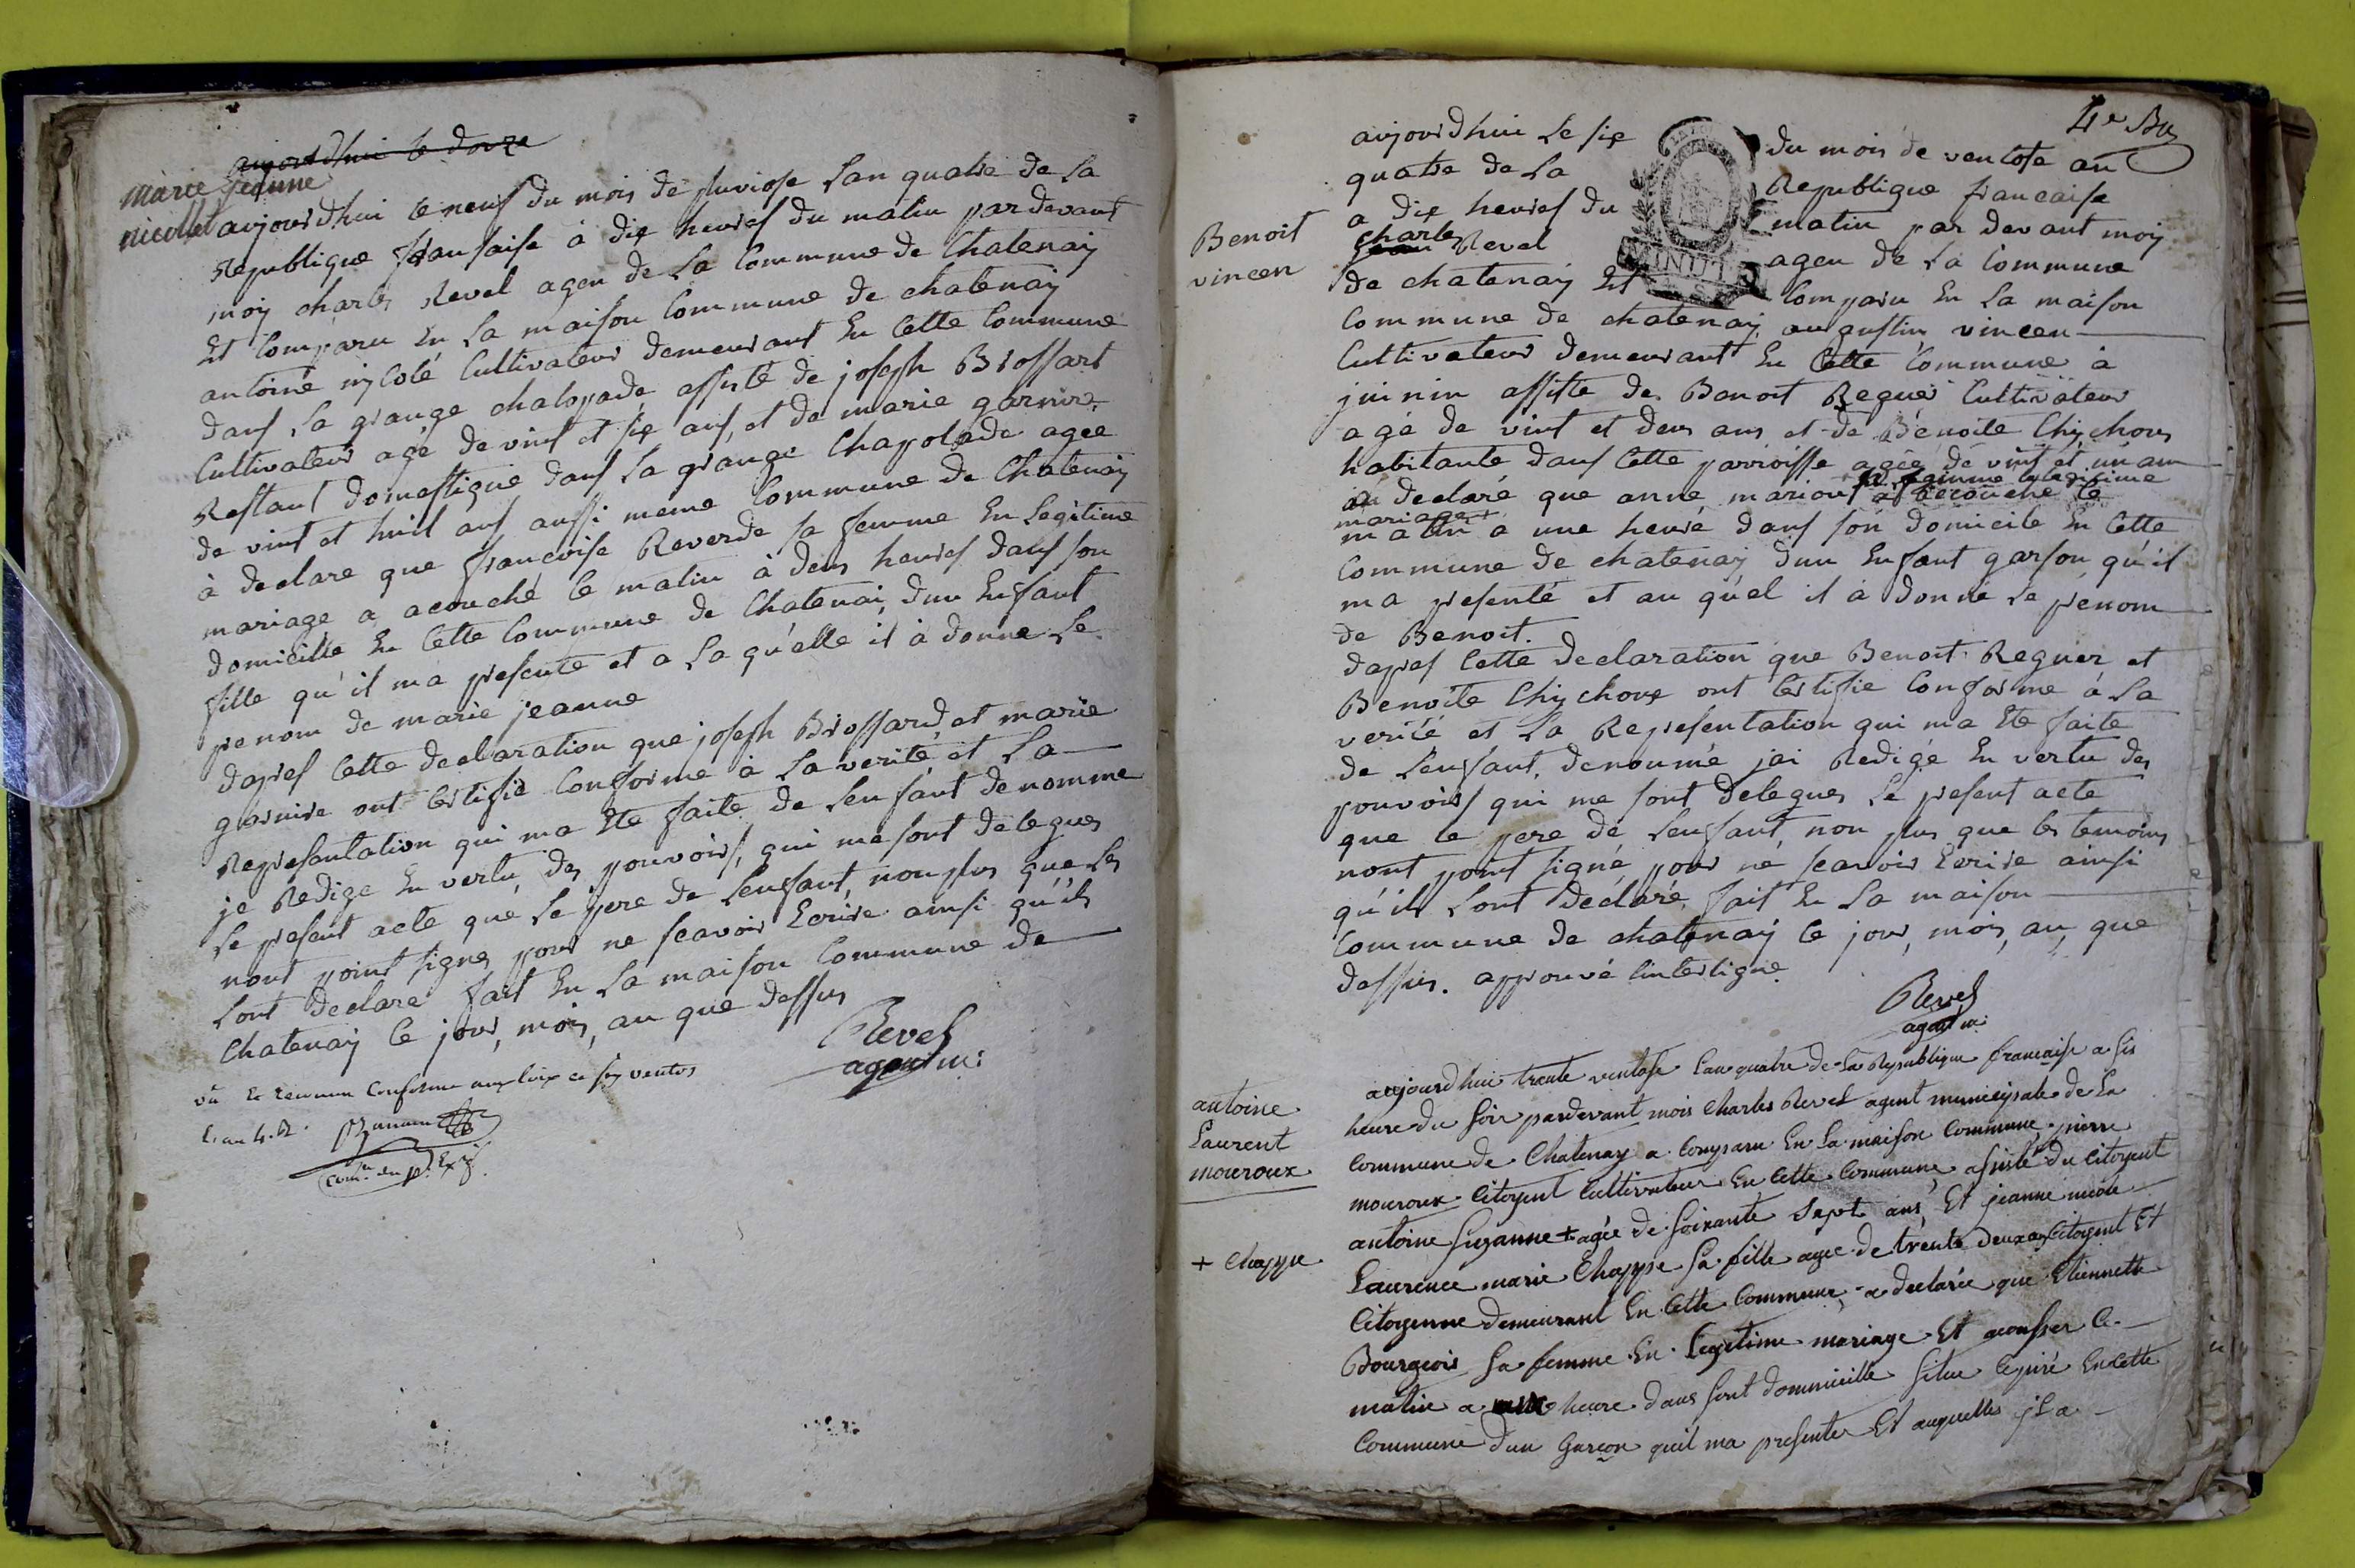 aujourdhui le douze
marie jeanne
nicollet
aujourdhui le neuf du mois de pluviose lan quatre de la
Republique fransaise à dix heures du matin par devant
moy charles Revel agen de la Commune de Chatenay
Et Comparu En la maison Commune de chatenay
antoine nycolé Cultivateur demeurant En Cette Commune
dans la grange chalopade assisté de joseph Brossart
Cultivateur agé de vint et six ans, et de marie garnire
Restant domestique dans la grange Chapolade agée
de vint et huit ans aussi meme Commune de Chatenay
à declare que francoise Reverde sa femme En legitime
mariage a acouché ce matin à deux heures dans son
domicille En Cette Commune de Chatenai, dun Enfant
fille qu'il ma presenté et a la qu'elle il à donne le
prenom de marie jeanne
dapres Cette declaration que joseph Brossard et marie
garnire ont Certifié Conforme à la verité et la
Representation qui ma Ete faite de lenfant denomme
je Redige En vertu des pouvoirs, qui me sont delegues
le present acte que le pere de lenfant, non plus que les
nont point signes pour ne scavoir Ecrire ainsi qu'ils
lont declare fait En la maison Commune de
Chatenay le jour, mois, an que dessus
Revel
agent m:
vû Et reconnu Conforme aux loix ce six ventos
l'an 4. R.
Com.re du p.r Ex.if
4.e
aujourdhui le six du mois de ventose an
quatre de la Republique francaise
a dix heures du matin par devant moy
Benoit
vincen
charles
jean Revel agen de la Commune
de chatenay Est Comparu En la maison
Commune de chatenay augustin vincen
Cultivateur demeurant En Cette Commune à
juinin assiste de Benoit Reguer Cultivateur
agé de vint et deux ans et de Bénoite Chychoux
habitante dans Cette parroisse agée de vint et un an
sa femme en legitime
a declaré que anne marion a acouché ce
mariage +
matin a une heure dans son domicile En Cette
Commune de chatenay dun Enfant garson qu'il
ma presenté et au qu'el il à donné le prenom
de Benoit.
dapres Cette declaration que Benoit Reguer, et
Benoite Chychoux ont Certifie Conforme à la
verité et la Representation qui ma Ete faite
de lenfant, denoumé jai Redigé En vertu des
pouvoirs qui me sont delegues le present acte
que le pere de lenfant, non plus que les temoins
nont point signé pour ne scavoir Ecrire ainsi
qu'ils lont declaré, fait En la maison
Commune de chatenay le jour, mois, an, que
dessus. approuvé linterligne.
Revel
agent m:
antoine
Laurent
mouroux
aujourdhui trente ventose Lan quatre de la Republique francaise a sis
heure du soir pardevant mois Charles Revel agent municipale de la
Commune de Chatenay a comparu En la maison Commune pierre
mouroux Citoyent Cultivateur En Cette Commune, assisté du Citoyent
antoine Suzanne + agée de soixante Sept ans Et jeanne
+ Chappe
Laurence marie Chappe sa fille agee de trente deux Citoyent Et
Citoyenne demeurant En Cette Commune a declarée que Etiennette
Bourgeois sa femme En legitime mariage Et acouscher Ce
matin a heure dans sont dommicille situe En Cette
Commune d'un Garcon quil ma presenter Et auquelles jl a